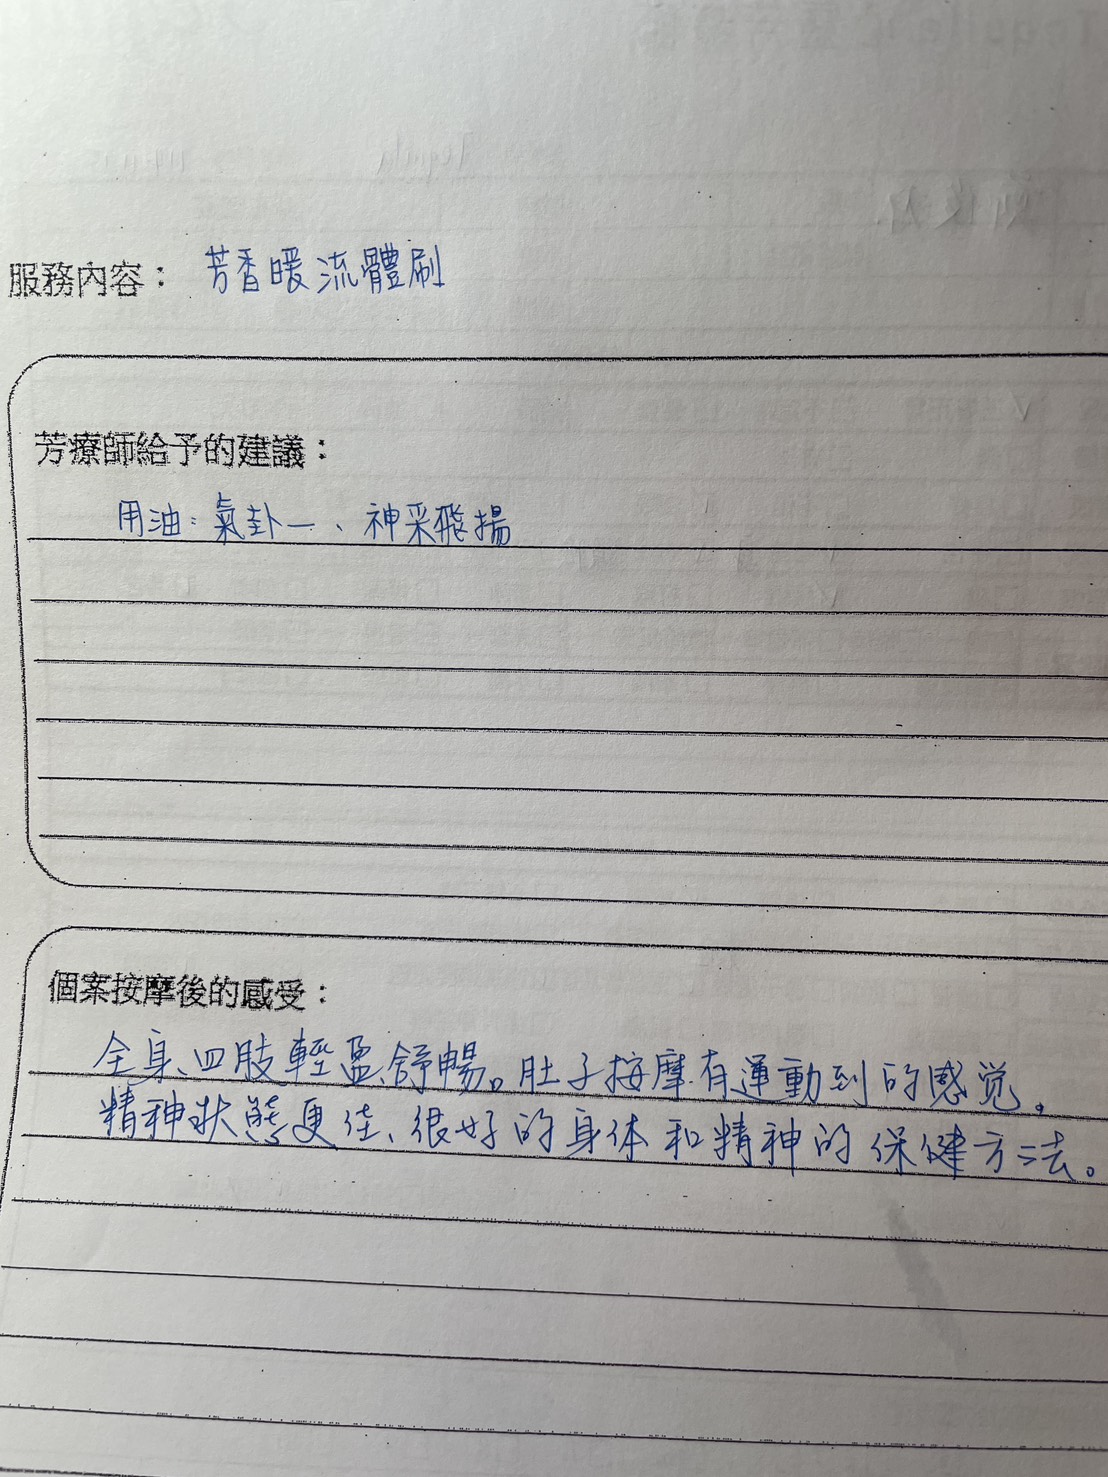 服務內容： 芳香暖流體刷
芳療師給予的建議：
用油：氣卦一、神采飛揚
個案按摩後的感受：
全身、四肢輕盈、舒暢。肚子按摩有運動到的感觉。
精神狀態更佳、很好的身体和精神的保健方法。